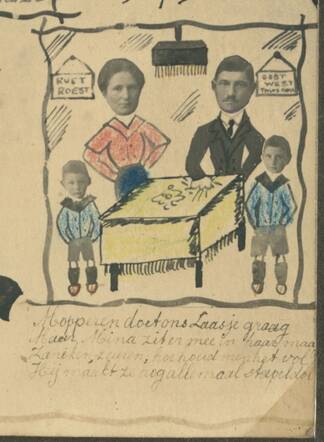 RUST
ROEST
OOST
WEST
THUIS BEST
Mopperen doet ons Laasje graag
Maar Mina zit er mee in haar maa
Zaniken, zeuren, hoe houd men het vol
Hij maakt ze nog allemaal stapeldol